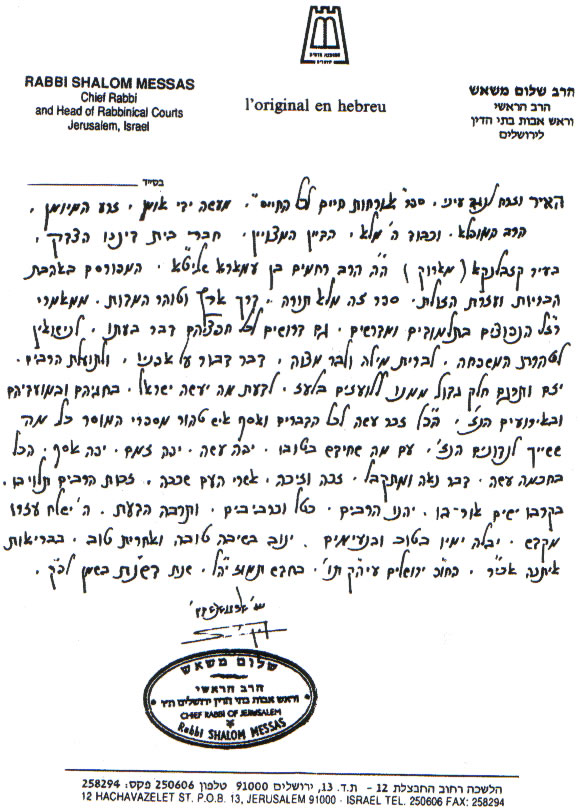 RABBI SHALOM MESSAS
Chief Rabbi
and Head of Rabbinical Courts
Jerusalem, Israel
l'original en hebreu
הרב שלום משאש
הרב הראשי
וראש אבות בתי הדין
לירושלים
בס״ד
האיר וזרח לנגד עיני, ספר "אורחות חיים לכל החיים". מעשה ידי אומן, זרע המיומן,
הרב המופלא, וכבוד ה' מלא, הדיין המצויין, חבר בית דיננו הצדק,
בעיר קזבלנקא (מארוק) ה״ה הרב רחמים בן עמארא שליט״א. המפורסם באהבת
הבריות ועזרת הזולת. ספר זה מלא תורה, דרך ארץ וטוהר המדות. ממאמרי
רז״ל הנפוצים בתלמודים ומדרשים. גם דרושים לכל חפציהם דבר בעתו, לנישואין
לטהרת המשפחה, לברית מילה ולבר מצוה, דבר דבור על אפניו, ולתועלת הרבים.
יזם ותרגם חלק גדול ממנו ללועזים בלעז. לדעת מה יעשה ישראל, בחגיהם ובמועדיהם
ובאירועים הנז'. הכל זכר עשה לכל הדברים ואסף איש טהור מספרי המוסר כל מה
ששייך לנדונים הנז'. עם מה שחידש בטובו. יפה עשה, יפה זמם, יפה אסף, הכל
בחכמה עשה, דבר נאה ומתקבל. זכה וזיכה, אשרי העם שככה, זכות הרבים תלוי בו.
בקרבו ישים אור-בו, יהנו הרבים, כטל וכרביבים, ותרבה הדעת, ה' ישלח עזרו
מקדש, יבלה ימיו בטוב ובנעימים, ינוב בשיבה טובה ואחרית טוב, בבריאות
איתנה אכי״ר. כחו״פ ירושלים עיה״ק תו', בחדש תמוז יהל', שנת
שלום משאש
הרב הראשי
וראש אבות בתי הדין ירושלים ת״ו
CHIEF RABBI OF JERUSALEM
Rabbi SHALOM MESSAS
הלשכה רחוב החבצלת 12 - ת.ד. 13, ירושלים 91000 טלפון 250606 פקס: 258294
12 HACHAVAZELET ST. P.O.B. 13, JERUSALEM 91000 - ISRAEL TEL. 250606 FAX: 258294